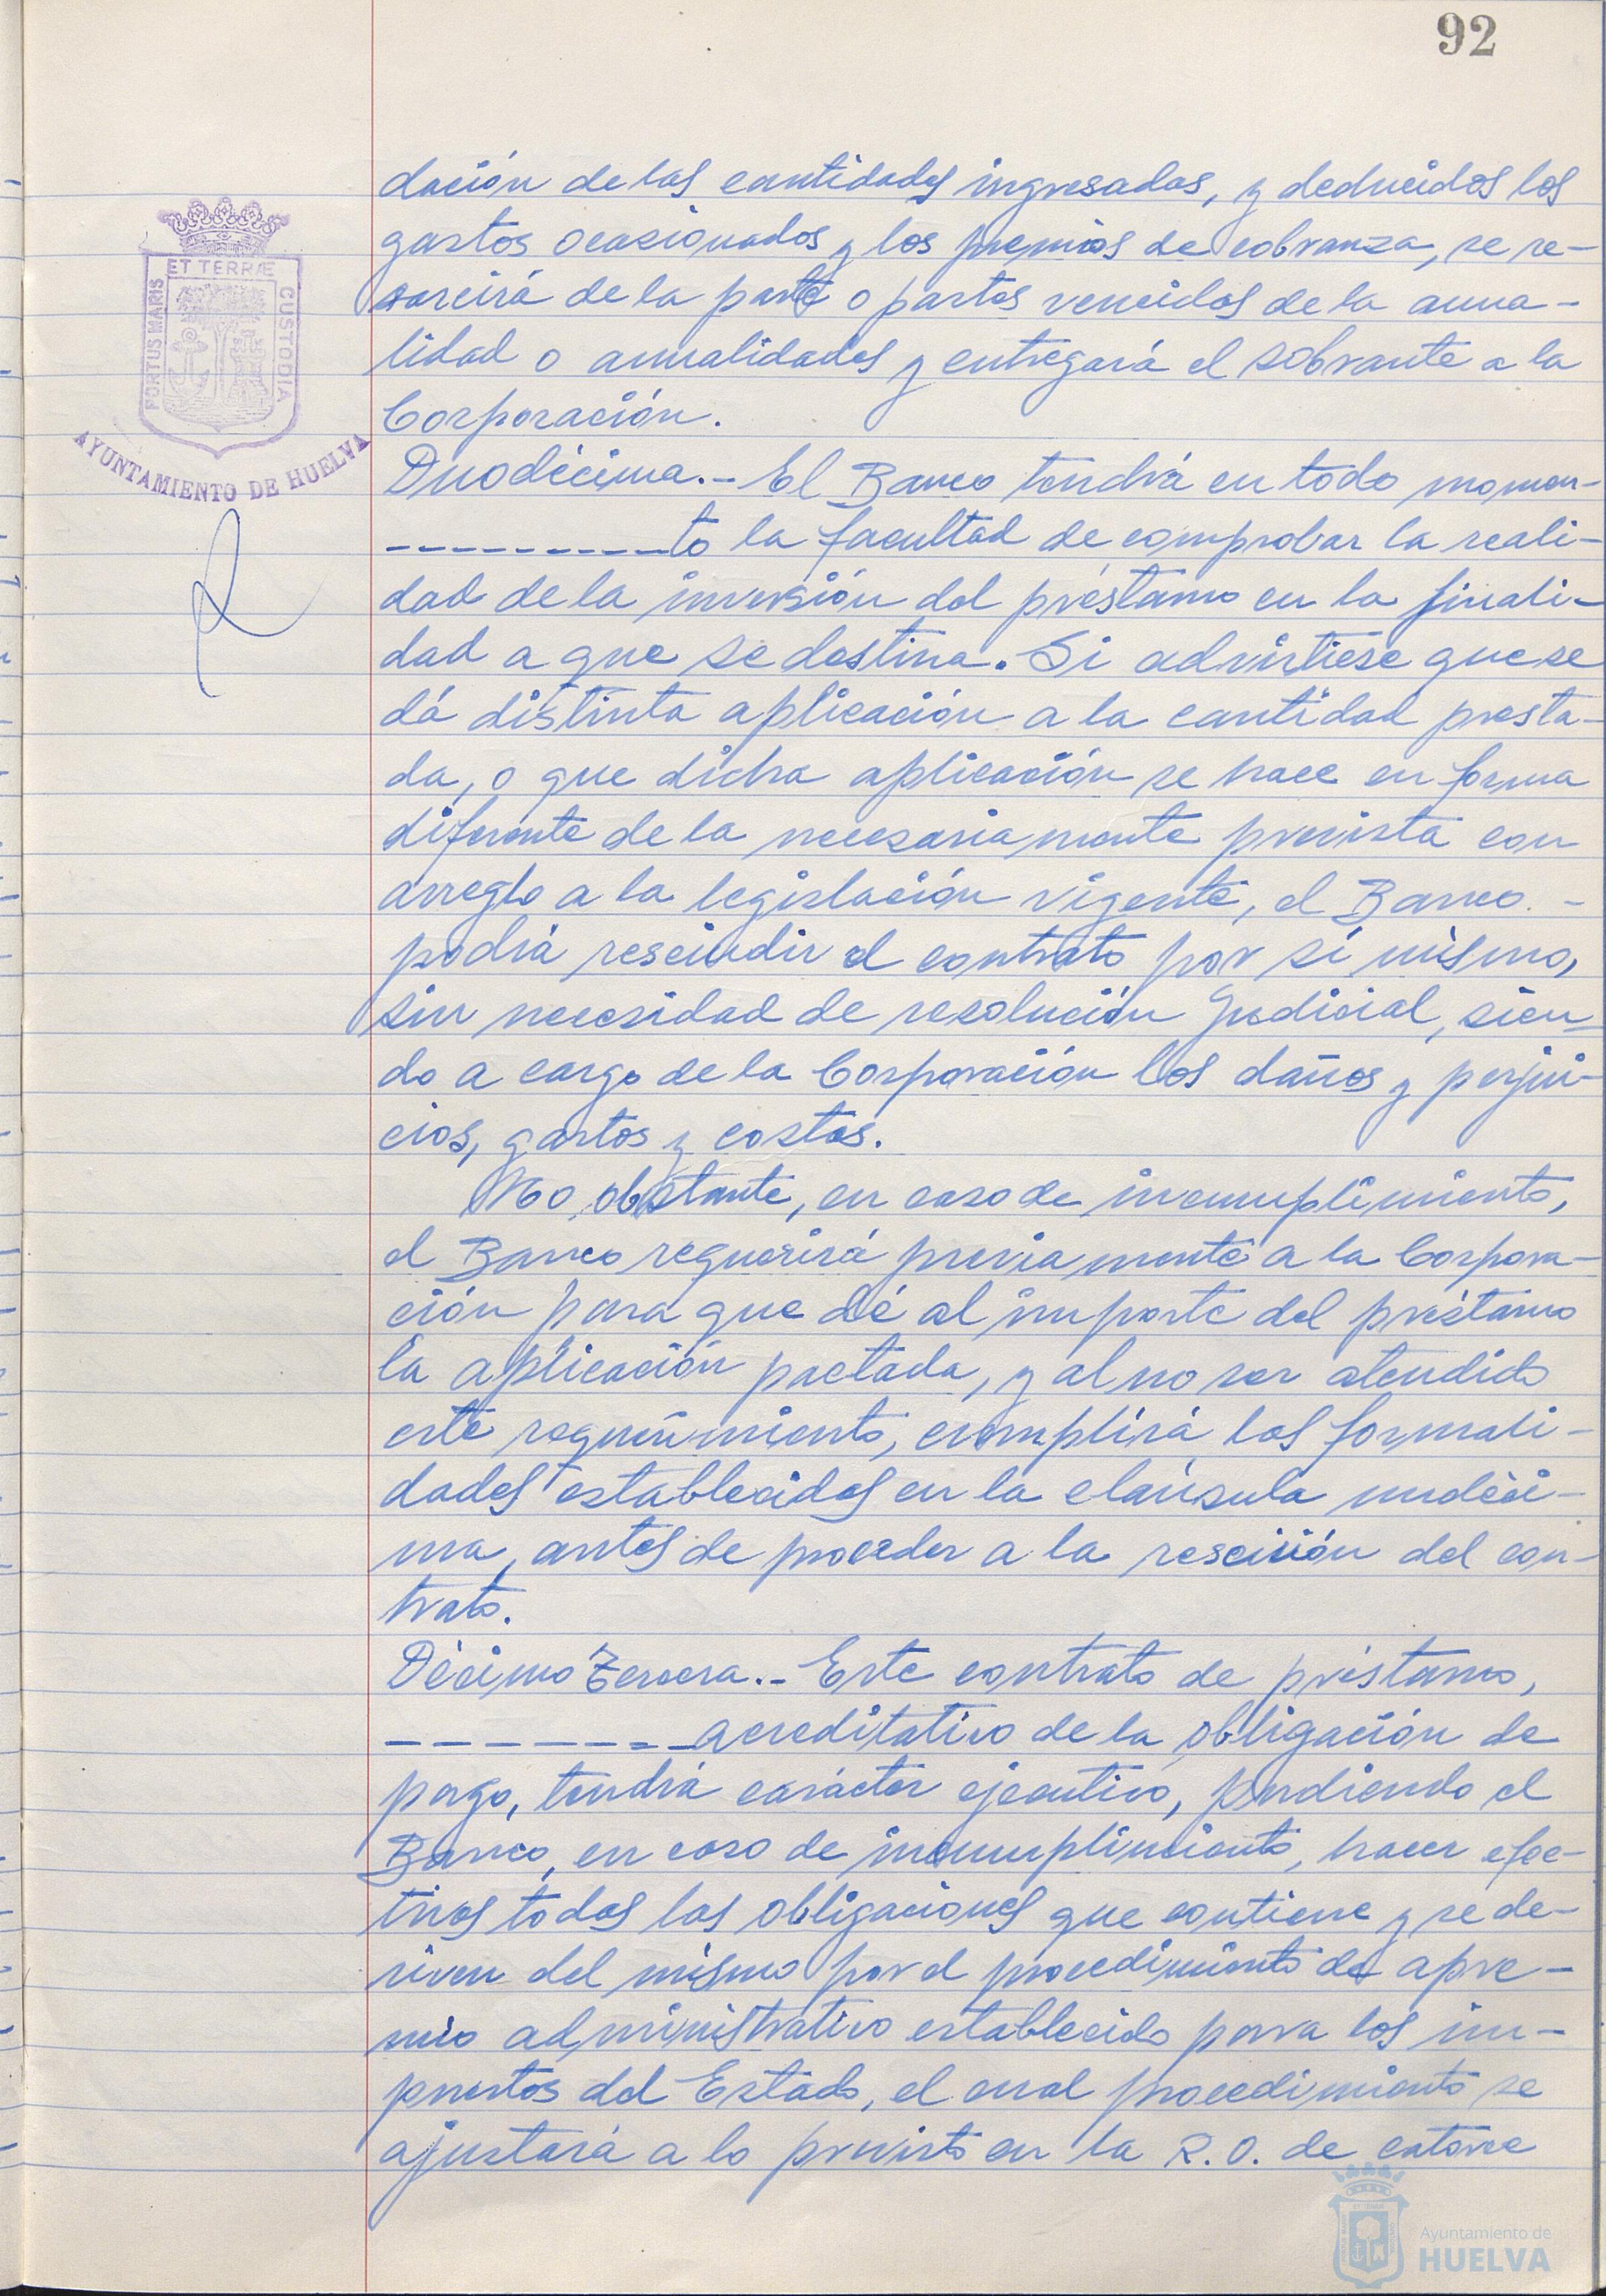 92
dación de las cantidades ingresadas, y deducidos los
gastos ocasionados y los premios de cobranza, se re-
sarcirá de la parte o partes vencidas de la anua-
lidad o anualidades y entregará el sobrante a la
Corporación.
Duodécima.- El Banco tendrá en todo momen-
----------to la facultad de comprobar la reali-
dad de la inversión del préstamo en la finali-
dad a que se destina. Si advirtiese que se
dá distinta aplicación a la cantidad presta-
da, o que dicha aplicación se hace en forma
diferente de la necesariamente prevista con
arreglo a la legislación vigente, el Banco. -
podrá rescindir el contrato por sí mismo,
sin necesidad de resolución Judicial, sien-
do a cargo de la Corporación los daños y perjui-
cios, gastos y costas.
No obstante, en caso de incumplimiento,
el Banco requerirá previamente a la Corpora-
ción para que dé al importe del préstamo
la aplicación pactada, y al no ser atendido
este requerimiento, cumplirá las formali-
dades establecidas en la claúsula undéci-
ma, antes de proceder a la resciión del con-
trato.
Décimo Tercera.- Este contrato de préstamo,
--------acreditativo de la obligación de
pago, tendrá carácter ejecutivo, pudiendo el
Banco, en caso de incumplimiento, hacer efec-
tivas todas las obligaciones que contiene y se de-
riven del mismo por el procedimiento de apre-
mio administrativo establecido para los im-
puestos del Estado, el cual procedimiento se
ajustará a lo previsto en la R.O. de catorce
PORTUS MARIS
ET TERRÆ
CUSTODIA
AYUNTAMIENTO DE HUELVA
Ayuntamiento de
HUELVA